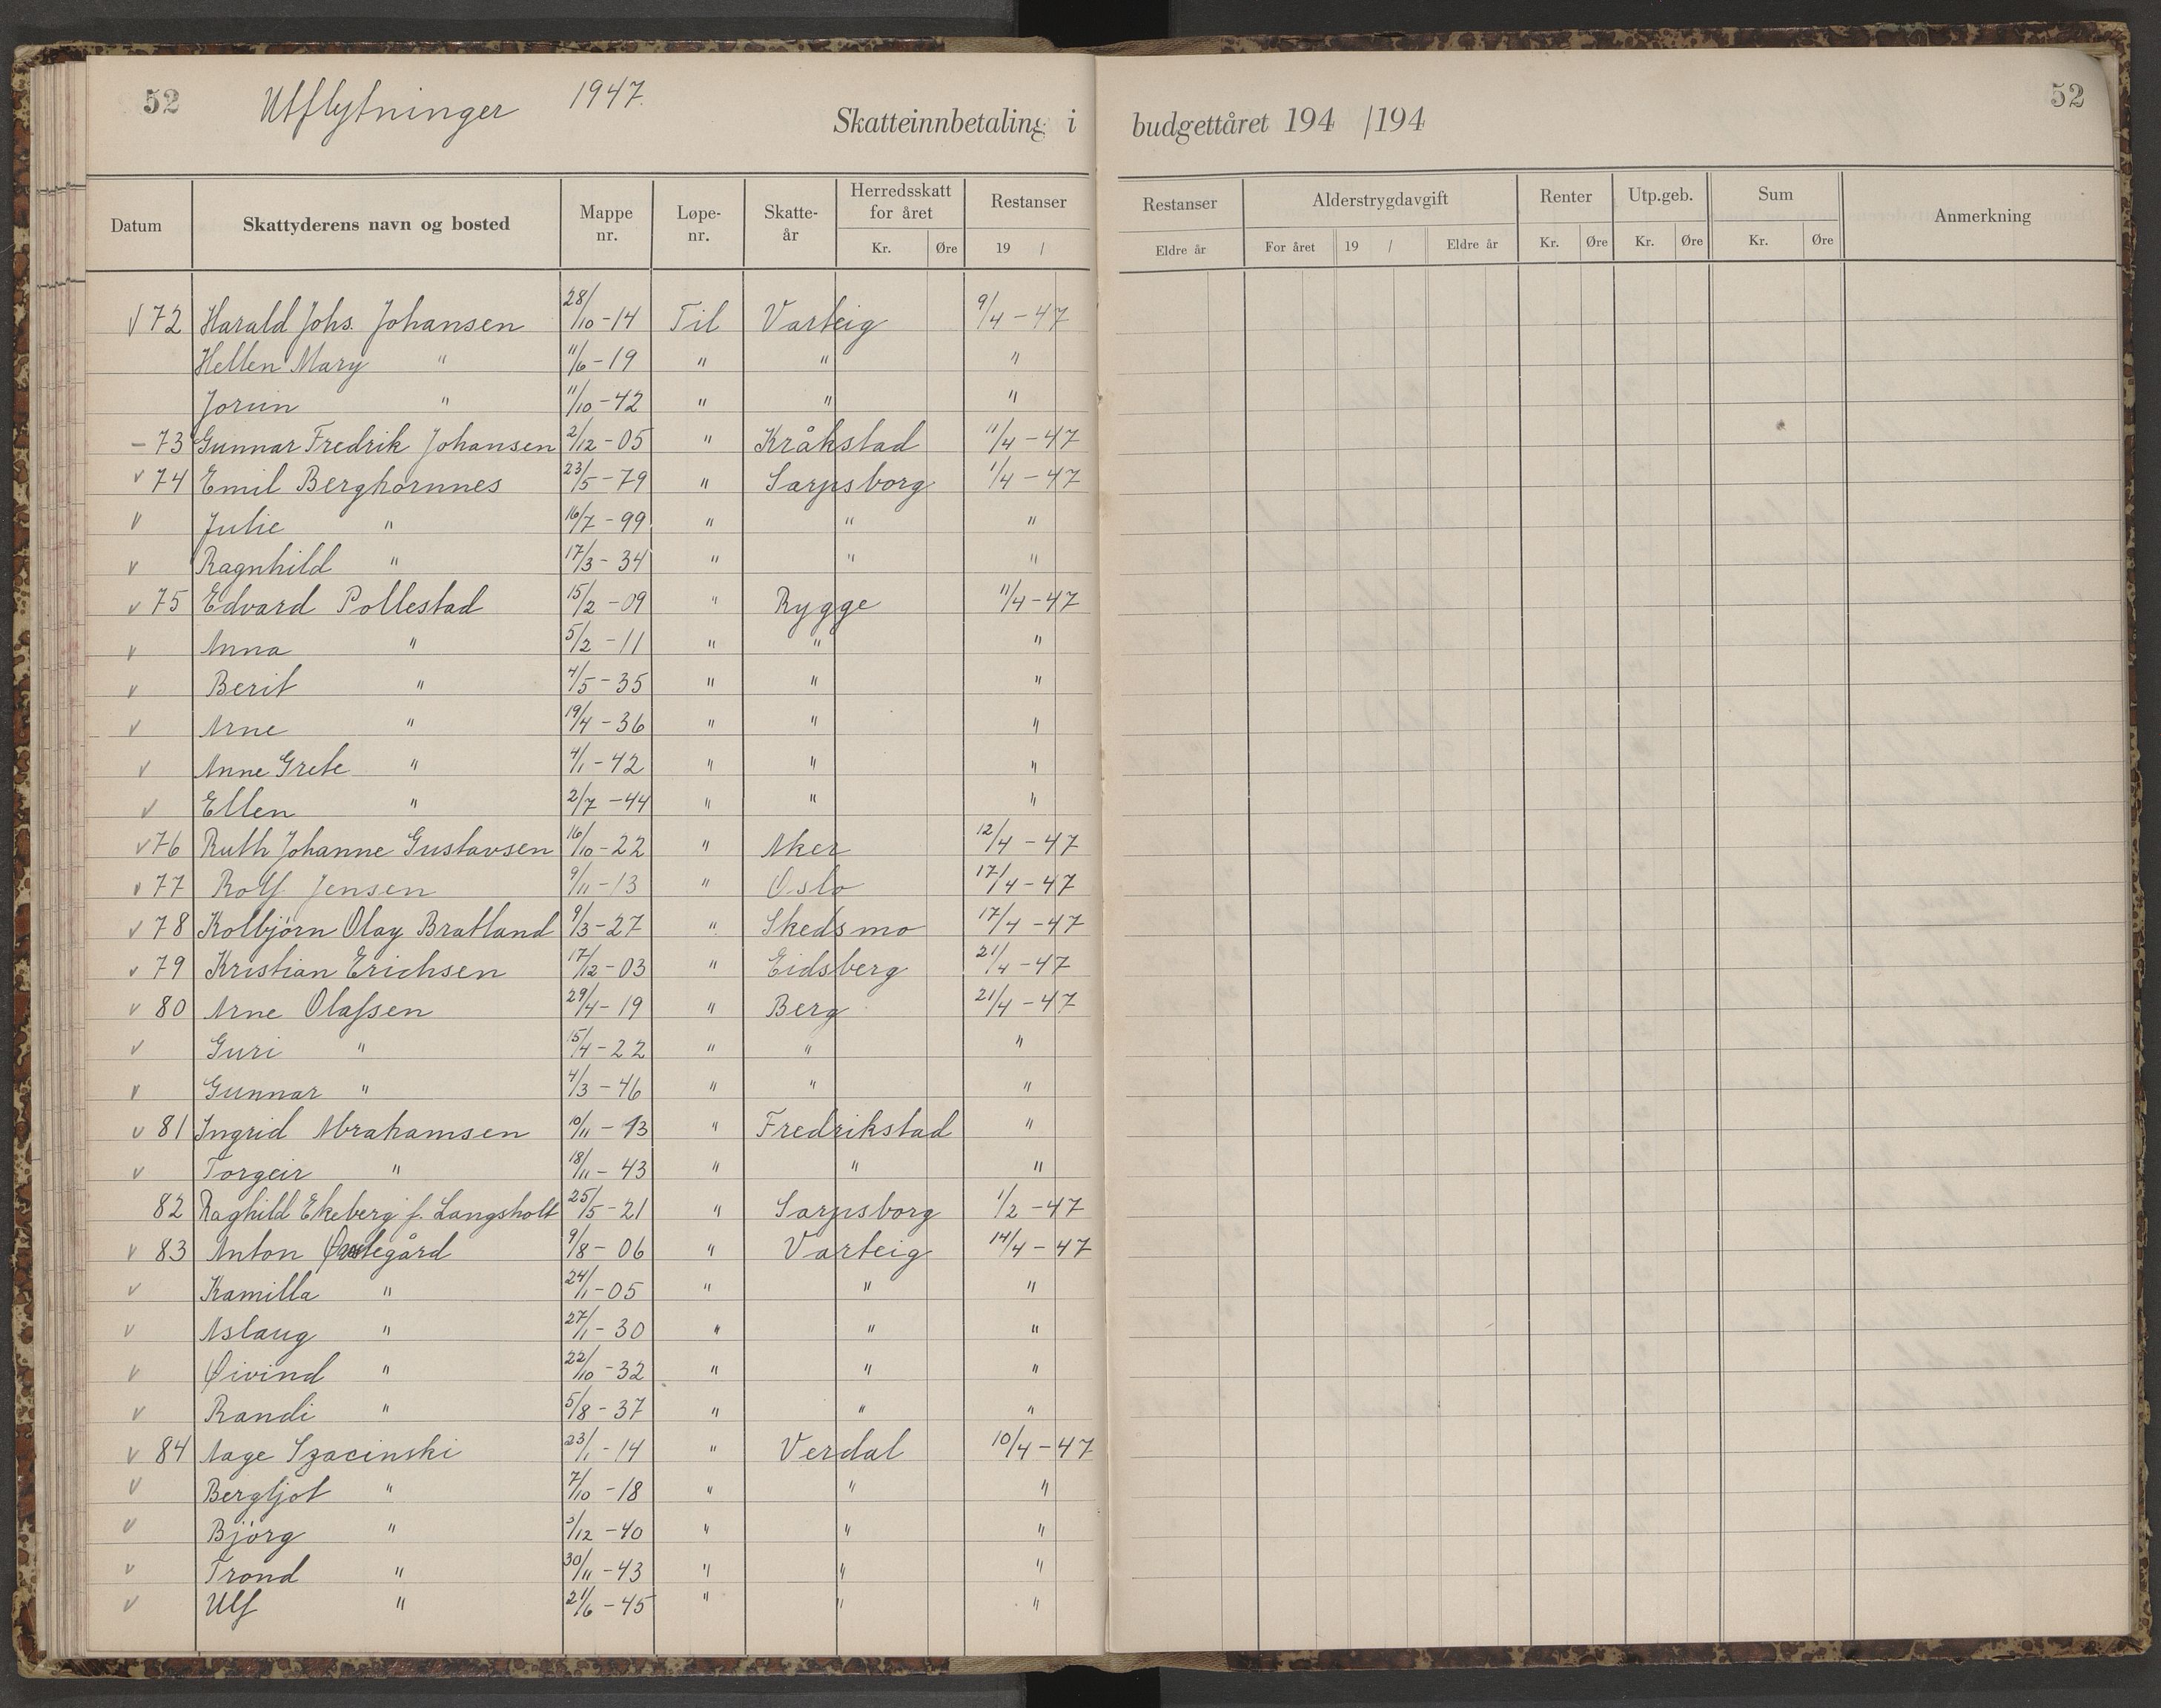 52 Utflytninger 1947. 52
Skatteinnbetaling i budgettåret 194 /194
Datum Skattyderens navn og bosted Mappe nr. Løpe-nr. Skatte-år Herredsskatt for året Kr. Øre Restanser 19 / Restanser Eldre år Alderstrygdavgift For året 19 / Eldre år Renter Kr. Øre Utp.geb. Kr. Øre Sum Kr. Øre Anmerkning
√ 72 Harald Johs. Johansen 28/10-14 Til Varteig 9/4-47
Hellen Mary " 11/6-19 " " "
Jorun " 11/10-42 " " "
- 73 Gunnar Fredrik Johansen 2/12-05 " Kråkstad 11/4-47
v 74 Emil Berghornnes 23/5-79 " Sarpsborg 1/4-47
v Julie " 16/7-99 " " "
v Ragnhild " 17/3-34 " " "
v 75 Edvard Pollestad 15/2-09 " Rygge 11/4-47
v Anna " 5/2-11 " " "
v Berit " 4/5-35 " " "
v Arne " 19/4-36 " " "
v Anne Grete " 4/1-42 " " "
v Ellen " 2/7-44 " " "
v 76 Ruth Johanne Gustavsen 16/10-22 " Aker 12/4-47
v 77 Rolf Jensen 9/11-13 " Oslo 17/4-47
v 78 Kolbjørn Olay Bratland 9/3-27 " Skedsmo 17/4-47
v 79 Kristian Erichsen 17/12-03 " Eidsberg 21/4-47
v 80 Arne Olafsen 29/4-19 " Berg 21/4-47
v Guri " 15/4-22 " " "
v Gunnar " 4/3-46 " " "
v 81 Ingrid Abrahamsen 10/11-13 " Fredrikstad "
v Torgeir " 18/11-43 " " "
82 Raghild Ekeberg f. Langsholt 25/5-21 " Sarpsborg 1/2-47
v 83 Anton 9/8-06 " Varteig 14/4-47
v Kamilla " 24/1-05 " " "
v Aslaug " 27/1-30 " " "
v Øivind " 22/10-32 " " "
v Randi " 5/8-37 " " "
v 84 Aage Szacinski 23/1-14 " Verdal 10/4-47
v Bergljot " 7/10-18 " " "
v Bjørg " 3/12-40 " " "
v Trond " 30/11-43 " " "
v Ulf " 21/6-45 " " "